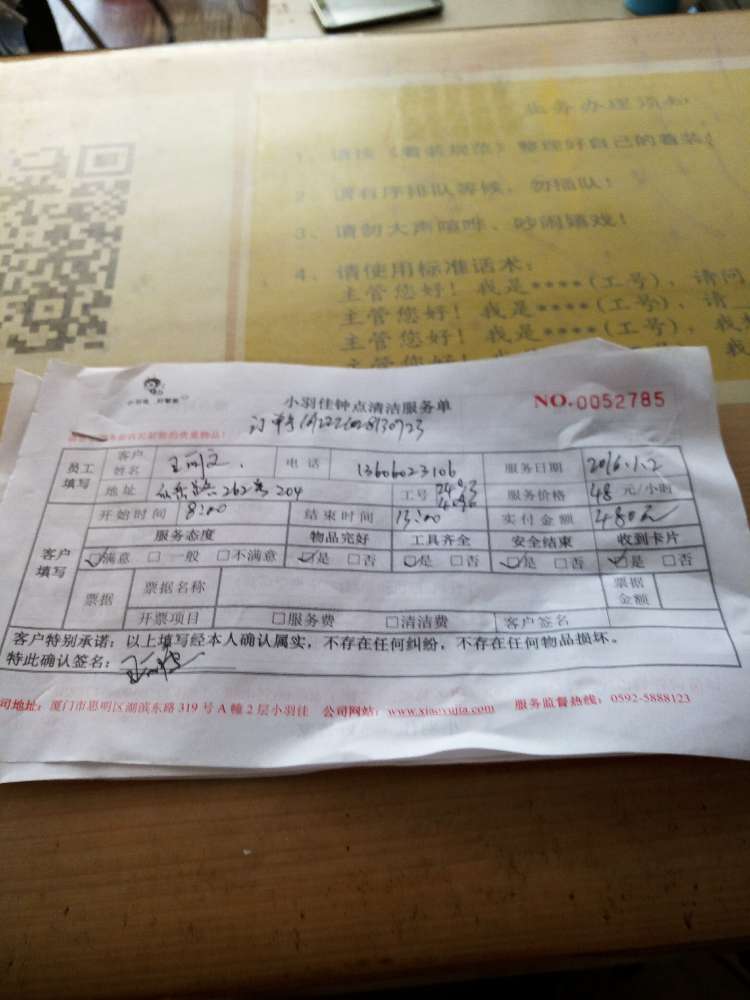 业务办理须知
1、请按《着装规范》整理好自己的着装!
2、请有序排队等候，勿插队!
3、请勿大声喧哗、吵闹嬉戏!
4、请使用标准话术：
主管您好！我是****(工号)，请问
主管您好！我是****(工号)，请
主管您好！我是****(工号)，我
主管您好！
小羽佳钟点清洁服务单 NO.0052785
订单号
员工填写 客户姓名 电话 13606023106 服务日期 2016.1.2
地址 262号204 工号 服务价格 48 元/小时
客户填写 开始时间 8:00 结束时间 13:00 实付金额 480元
服务态度 物品完好 工具齐全 安全结束 收到卡片
☑满意 □一般 □不满意 ☑是 □否 ☑是 □否 ☑是 □否 ☑是 □否
票据 票据名称 票据金额
开票项目 □服务费 □清洁费 客户签名
客户特别承诺：以上填写经本人确认属实，不存在任何纠纷，不存在任何物品损坏。
特此确认签名：
司地址：厦门市思明区湖滨东路 319 号 A 幢 2 层小羽佳 公司网站：www.xiaoyujia.com 服务监督热线：0592-5888123